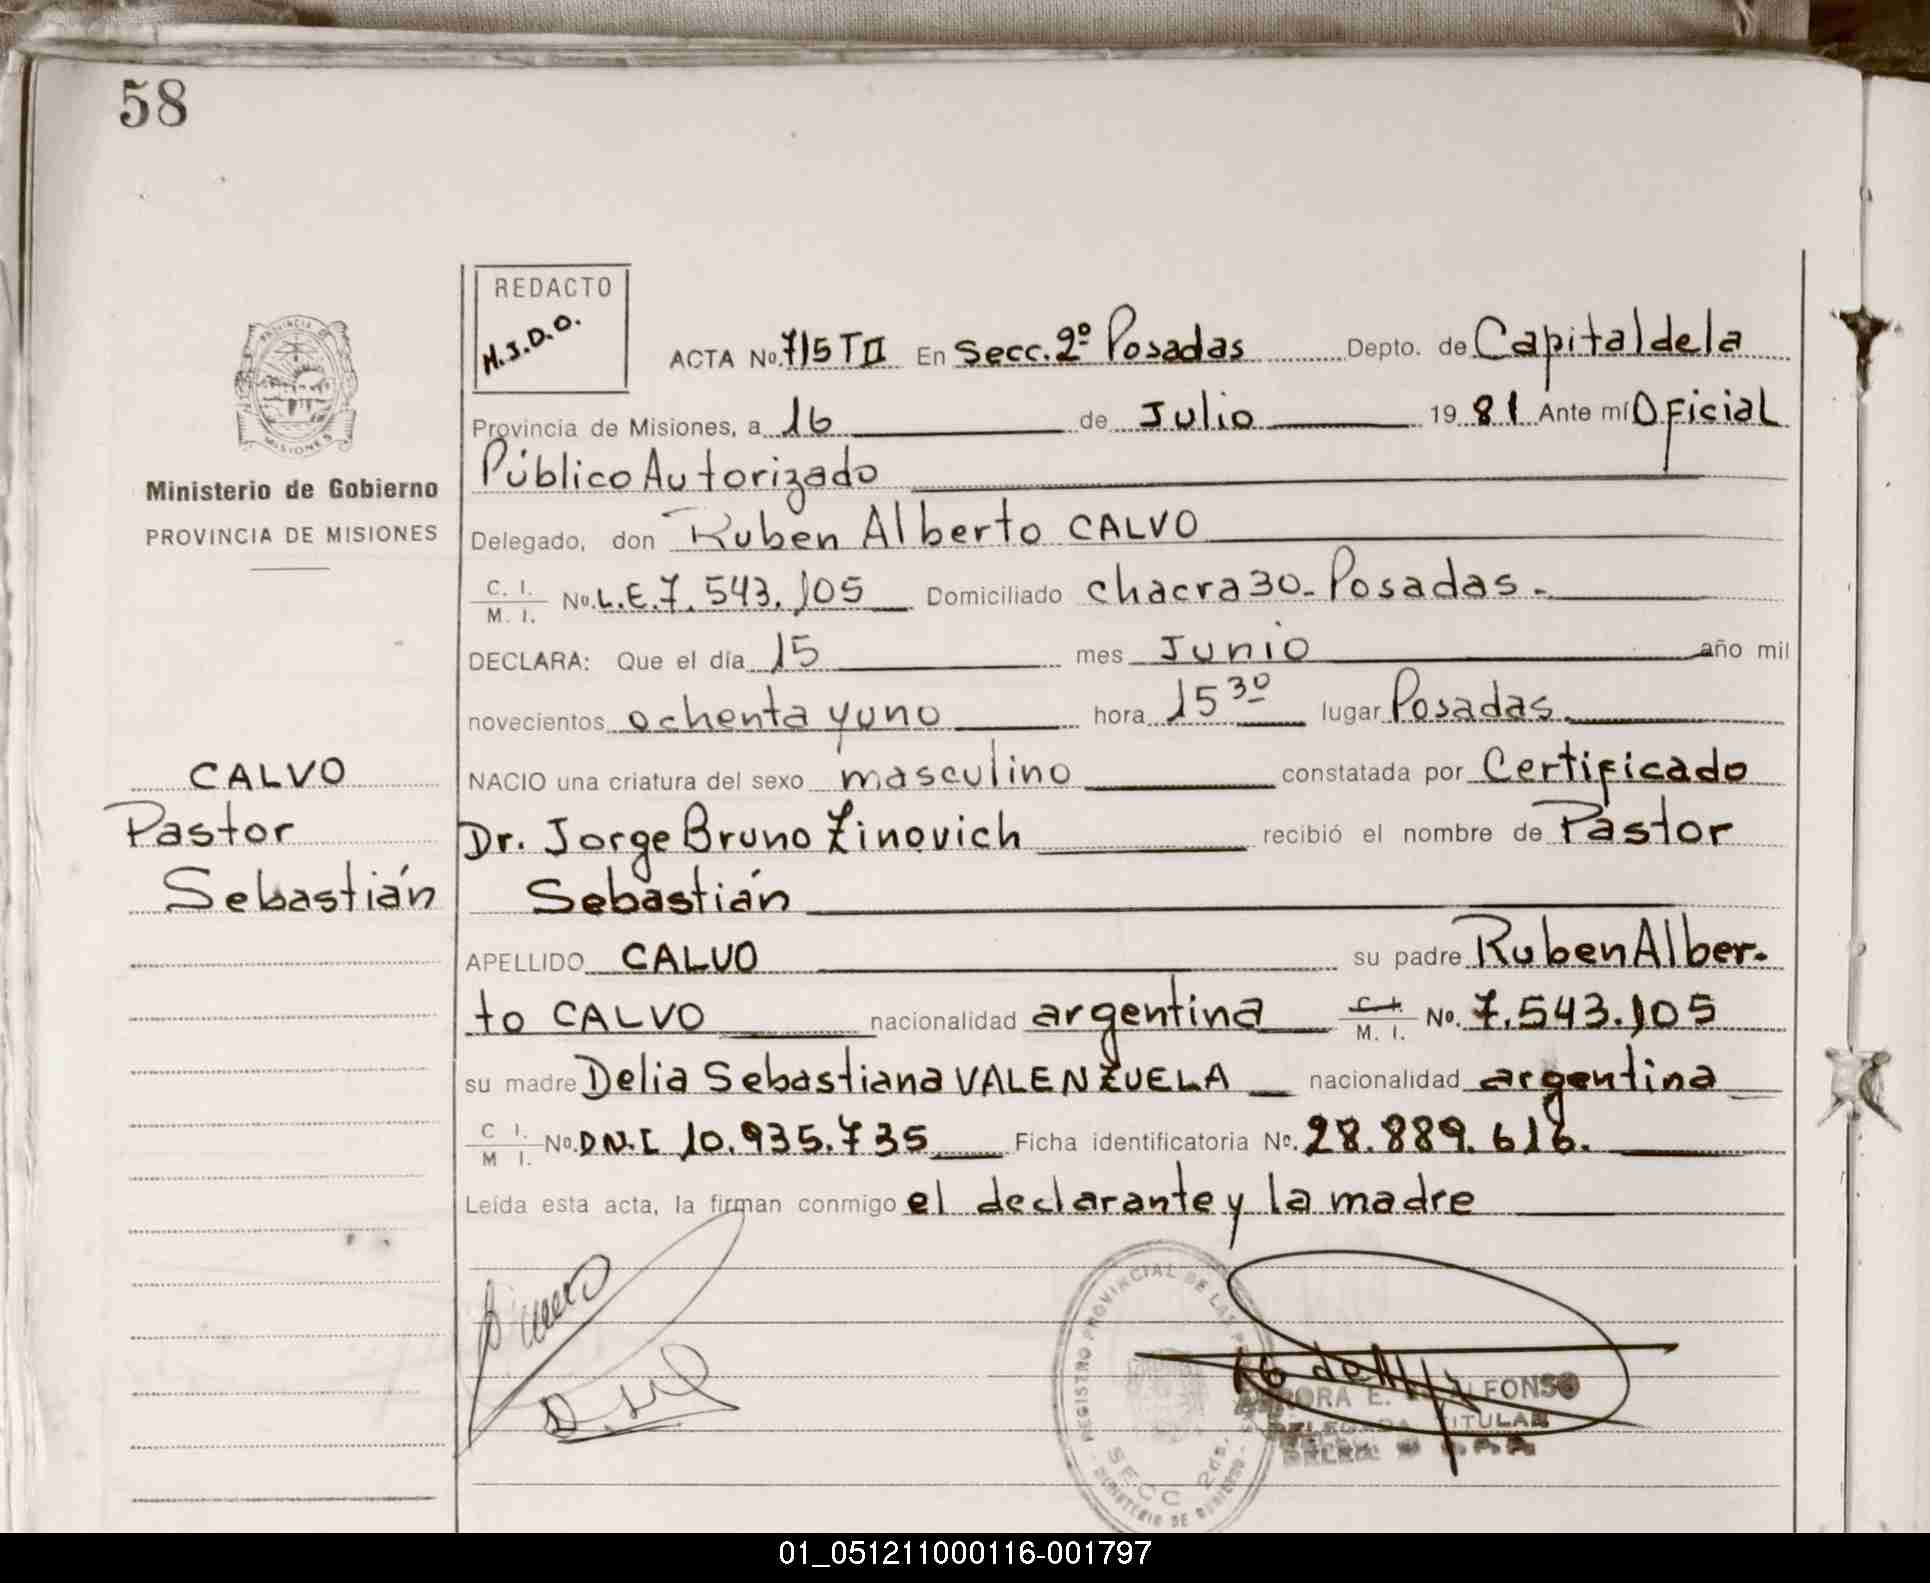 58
REDACTO
M.J.D.O.
ACTA No. 715 T II En Secc. 2º Posadas Depto. de Capital de la
Provincia de Misiones, a 16 de Julio 1981 Ante mí Oficial
Público Autorizado
Delegado, don Ruben Alberto CALVO
C. I. / M. I. No. L.E. 7.543.105 Domiciliado chacra 30 - Posadas.-
DECLARA: Que el día 15 mes Junio año mil
novecientos ochenta y uno hora 15 30 lugar Posadas.
NACIO una criatura del sexo masculino constatada por Certificado
Dr. Jorge Bruno Zinovich recibió el nombre de Pastor
Sebastián
APELLIDO CALVO su padre Ruben Alber-
to CALVO nacionalidad argentina C. I. / M. I. No. 7.543.105
su madre Delia Sebastiana VALENZUELA nacionalidad argentina
C. I. / M. I. No. D.N.I. 10.935.735 Ficha identificatoria No. 28.889.616.
Leída esta acta, la firman conmigo el declarante y la madre
PROVINCIA DE
MISIONES
Ministerio de Gobierno
PROVINCIA DE MISIONES
CALVO
Pastor
Sebastián
REGISTRO PROVINCIAL DE LAS
SECC 2da.
MINISTERIO DE GOBIERNO
E. ALFONSO
DELEGADA TITULAR
01_051211000116-001797